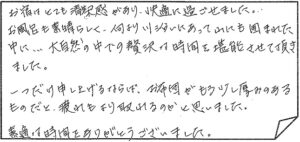 お宿はとても清潔感があり、快適に過ごせました。
お風呂も素晴らしく、何より川沿いにあって山にも囲まれた
中に…大自然の中での贅沢な時間を堪能させて頂き
ました。
一つだけ申し上げるならば、お布団がもう少し厚みのある
ものだと、疲れもより取れるのかと思いました。
素適な時間をありがとうございました。